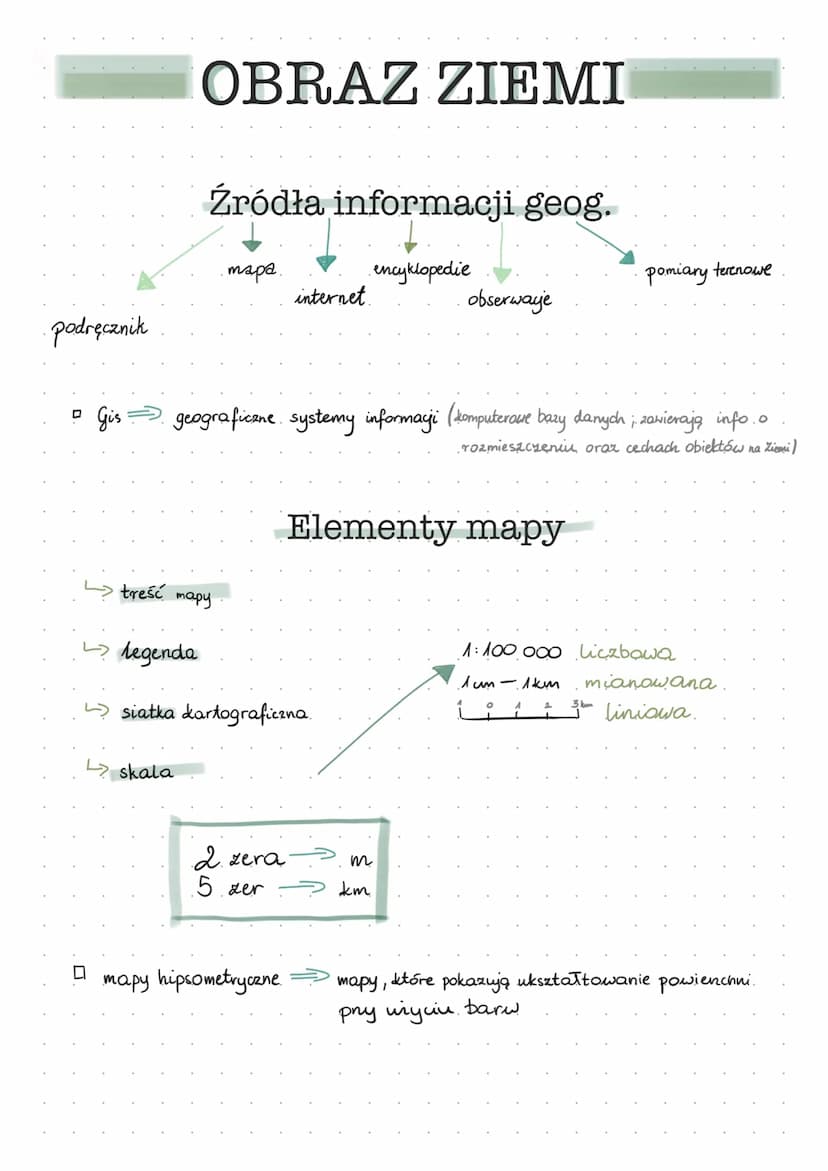 OBRAZ ZIEMI
Źródła informacji geog.
mapa
encyklopedie
pomiary terenowe
internet
obserwacje
podręcznik
Gis ⇒ geograficzne systemy informacji (komputerowe bazy danych; zawierają info o
rozmieszczeniu oraz cechach obiektów na Ziemi)
Elementy mapy
↳ treść mapy
↳ legenda
1:100 000 liczbowa
1cm – 1km mianowana
↳ siatka kartograficzna
1 0 1 2 3km liniowa
↳ skala
2 zera ⇒ m
5 zer ⇒ km
mapy hipsometryczne ⇒ mapy, które pokazują ukształtowanie powierzchni
przy użyciu barw